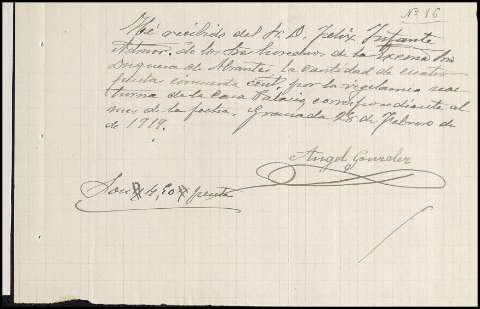 Nº 16
He recibido del Sr. D. Felix Infante
Admor. de los Sres herederos de la Excma Sra
Duquesa de Abrante, la cantidad de cuatro
pesetas cincuenta cent. por la vigilancia noc
turna de la Casa Palacio, correspondiente al
mes de la fecha. Granada 28 de Febrero de
de 1919.
Angel Gonzalez
Son 4,50 pesetas